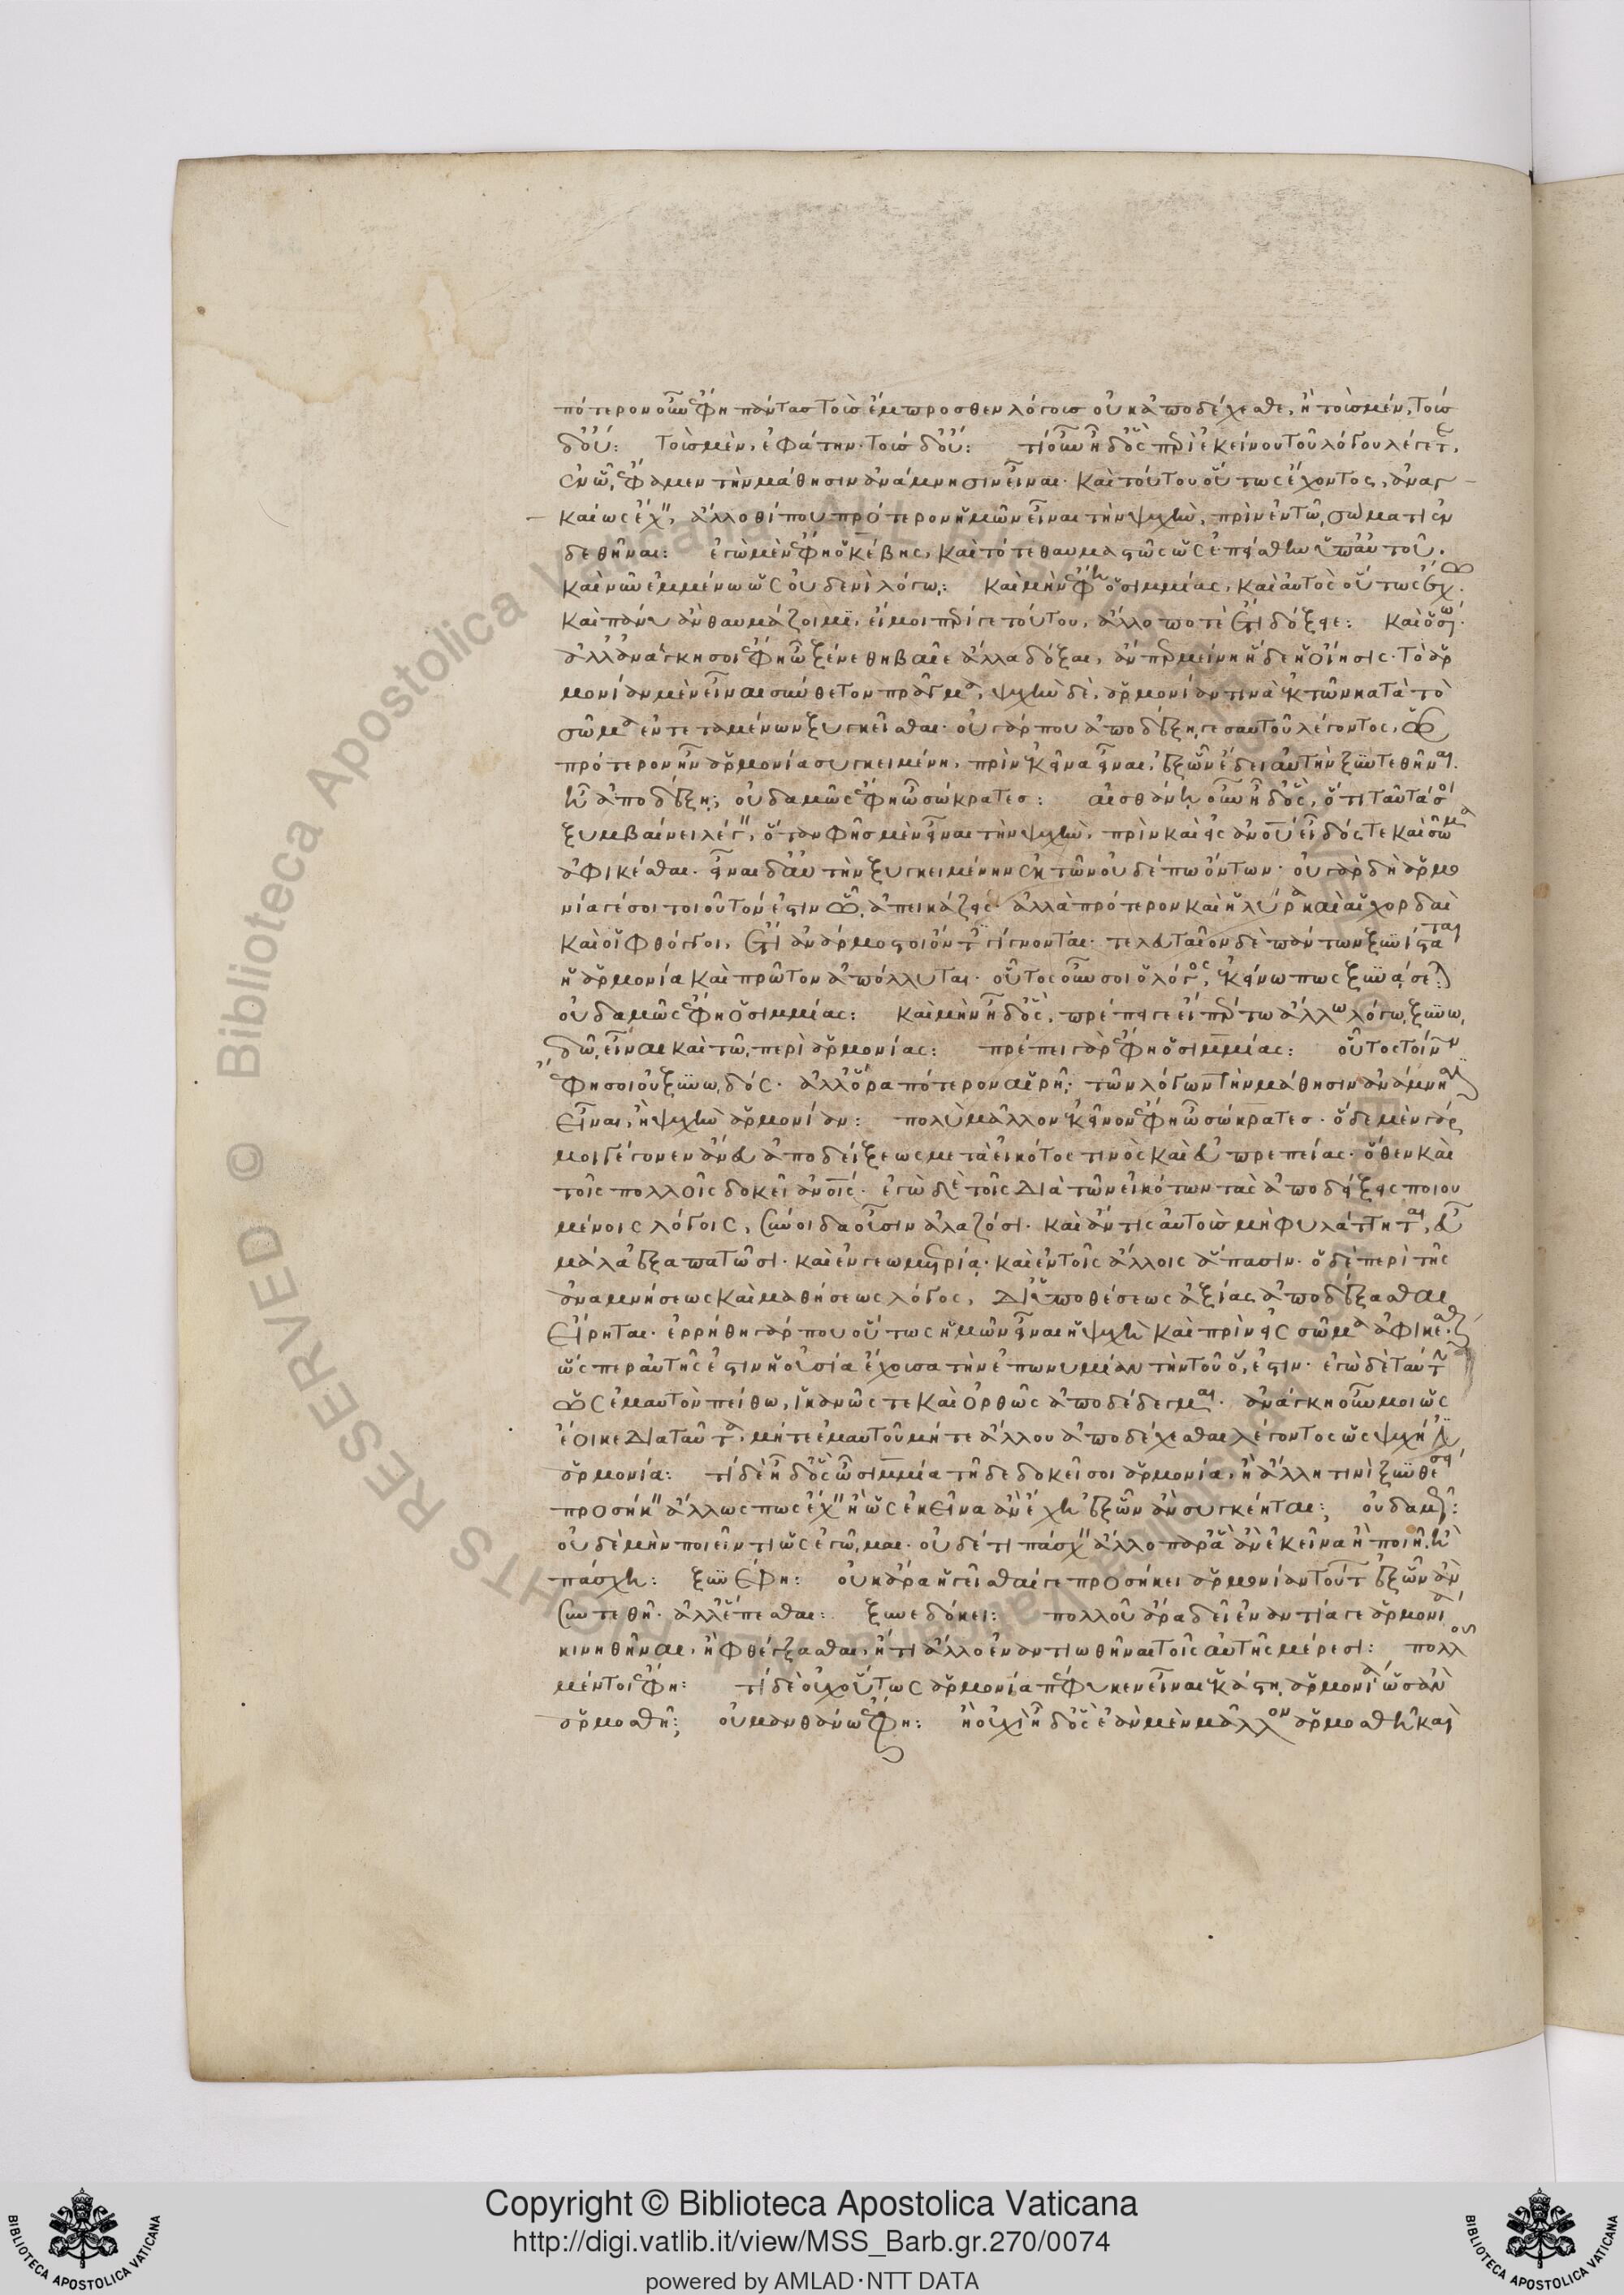 πότερον οὖν ἔφη πάντας τοὺς ἔμπροσθεν λόγους οὐκ ἀποδέχεσθε, ἢ τοὺς μέν, τοὺς
δ' οὔ: τοὺς μὲν, ἐφάτην· τοὺς δ' οὔ: τί οὖν ἦ δ' ὃς περὶ ἐκείνου τοῦ λόγου λέγετε,
ἐν ᾧ ἔφαμεν τὴν μάθησιν ἀνάμνησιν εἶναι· καὶ τούτου οὕτως ἔχοντος, ἀναγ
καίως ἔχειν, ἄλλοθί που πρότερον ἡμῶν εἶναι τὴν ψυχὴν, πρὶν ἐν τῷ σώματι ἐν
δεθῆναι: ἐγὼ μὲν ἔφη ὁ κέβης, καὶ τότε θαυμαστῶς ὡς ἐπείσθην ὑπ' αὐτοῦ.
καὶ νῦν ἐμμένω ὡς οὐδενὶ λόγῳ: καὶ μὴν ἔφη ὁ σιμμίας, καὶ αὐτὸς οὕτως ἔχω.
καὶ πάνυ ἂν θαυμάζοιμι, εἴ μοι περί γε τούτου, ἄλλο ποτὲ ἔτι δόξειε: καὶ ὁ σω.
ἀλλ' ἀνάγκη σοι ἔφη ὦ ξένε θηβαῖε ἄλλα δόξαι, ἂν περ μείνῃ ἥδε ἡ οἴησις· τὸ ἁρ
μονίαν μὲν εἶναι σύνθετον πρᾶγμα, ψυχὴν δὲ, ἁρμονίαν τινὰ ἐκ τῶν κατὰ τὸ
σῶμα ἐντεταμένων ξυγκεῖσθαι· οὐ γάρ που ἀποδέξῃ γε σαυτοῦ λέγοντος, ὡς
πρότερον ἦν ἁρμονία συγκειμένη, πρὶν ἐκεῖνα εἶναι, ἐξ ὧν ἔδει αὐτὴν ξυντεθῆναι.
ἢ ἀποδέξῃ; οὐδαμῶς ἔφη ὦ σώκρατες: αἰσθάνῃ οὖν ἦ δ' ὅς, ὅτι ταῦτά σοι
ξυμβαίνει λέγειν, ὅταν φῇς μὲν εἶναι τὴν ψυχὴν, πρὶν καὶ εἰς ἀνου εἶδός τε καὶ σῶμα
ἀφικέσθαι· εἶναι δ' αὐτὴν ξυγκειμένην ἐκ τῶν οὐδέπω ὄντων· οὐ γὰρ δὴ ἁρμο
νία γέ σοι τοιοῦτόν ἐστιν ᾧ ἀπεικάζεις· ἀλλὰ πρότερον καὶ ἡ λύρα καὶ αἱ χορδαὶ
καὶ οἱ φθόγγοι, ἔτι ἀνάρμοστοι ὄντες γίγνονται· τελευταῖον δὲ πάντων ξυνίσταται
ἡ ἁρμονία καὶ πρῶτον ἀπόλλυται· οὗτος οὖν σοι ὁ λόγος, ἐκείνῳ πως ξυνᾴσεται:
οὐδαμῶς ἔφη ὁ σιμμίας: καὶ μὴν ἦ δ' ὃς, πρέπει γε εἴπερ τῳ ἄλλῳ λόγῳ ξυνῳ
δῷ εἶναι καὶ τῷ περὶ ἁρμονίας: πρέπει γὰρ ἔφη ὁ σιμμίας: οὗτος τοίνυν
ἔφη σοι οὐ ξυνῳδός· ἀλλ' ὅρα πότερον αἱρῇ· τῶν λόγων τὴν μάθησιν ἀνάμνησιν
εἶναι, ἢ ψυχὴν ἁρμονίαν: πολὺ μᾶλλον ἐκεῖνον ἔφη ὦ σώκρατες· ὅδε μὲν γάρ
μοι γέγονεν ἄνευ ἀποδείξεως μετὰ εἰκότος τινὸς καὶ εὐπρεπείας· ὅθεν καὶ
τοῖς πολλοῖς δοκεῖ ἀνοις· ἐγὼ δὲ τοῖς διὰ τῶν εἰκότων τὰς ἀποδείξεις ποιου
μένοις λόγοις, σύνοιδα οὖσιν ἀλαζόσι· καὶ ἄν τις αὐτοὺς μὴ φυλάττηται, εὖ
μάλα ἐξαπατῶσι· καὶ ἐν γεωμετρίᾳ· καὶ ἐν τοῖς ἄλλοις ἅπασιν· ὁ δὲ περὶ τῆς
ἀναμνήσεως καὶ μαθήσεως λόγος, δι' ὑποθέσεως ἀξίας ἀποδέξασθαι
εἴρηται· ἐρρήθη γάρ που οὕτως ἡμῶν εἶναι ἡ ψυχὴ καὶ πρὶν εἰς σῶμα ἀφικέσθαι·
ὥσπερ αὐτῆς ἐστιν ἡ οὐσία ἔχουσα τὴν ἐπωνυμίαν τὴν τοῦ ὅ ἐστιν· ἐγὼ δὲ ταύτην
ὡς ἐμαυτὸν πείθω, ἱκανῶς τε καὶ ὀρθῶς ἀποδέδεγμαι· ἀνάγκη οὖν μοι ὡς
ἔοικε διὰ ταῦτα, μήτε ἐμαυτοῦ μήτε ἄλλου ἀποδέχεσθαι λέγοντος ὡς ψυχή ἐστιν
ἁρμονία: τί δὲ ἦ δ' ὃς ὦ σιμμία τῇδε δοκεῖ σοι ἁρμονία, ἢ ἄλλῃ τινὶ ξυνθέσει
προσήκειν ἄλλως πως ἔχειν ἢ ὡς ἐκεῖνα ἂν ἔχῃ ἐξ ὧν ἂν συγκέηται; οὐδαμῶς:
οὐδὲ μὴν ποιεῖν τι ὡς ἐγᾦμαι· οὐδέ τι πάσχειν ἄλλο παρ' ἃ ἂν ἐκεῖνα ἢ ποιῇ ἢ
πάσχῃ: ξυνέφη: οὐκ ἄρα ἡγεῖσθαί γε προσήκει ἁρμονίαν τούτων ἐξ ὧν ἂν
συντεθῇ· ἀλλ' ἕπεσθαι: ξυνεδόκει: πολλοῦ ἄρα δεῖ ἐναντία γε ἁρμονία
κινηθῆναι, ἢ φθέγξασθαι, ἤ τι ἄλλο ἐναντιωθῆναι τοῖς αὐτῆς μέρεσι: πολλοῦ
μέντοι ἔφη: τί δὲ οὐχ οὕτως ἁρμονία πέφυκεν εἶναι ἑκάστη ἁρμονία ὡς ἂν
ἁρμοσθῇ; οὐ μανθάνω ἔφη: ἢ οὐχὶ ἦ δ' ὃς ἐὰν μὲν μᾶλλον ἁρμοσθῇ καὶ
Copyright © Biblioteca Apostolica Vaticana
http://digi.vatlib.it/view/MSS_Barb.gr.270/0074
powered by AMLAD·NTT DATA